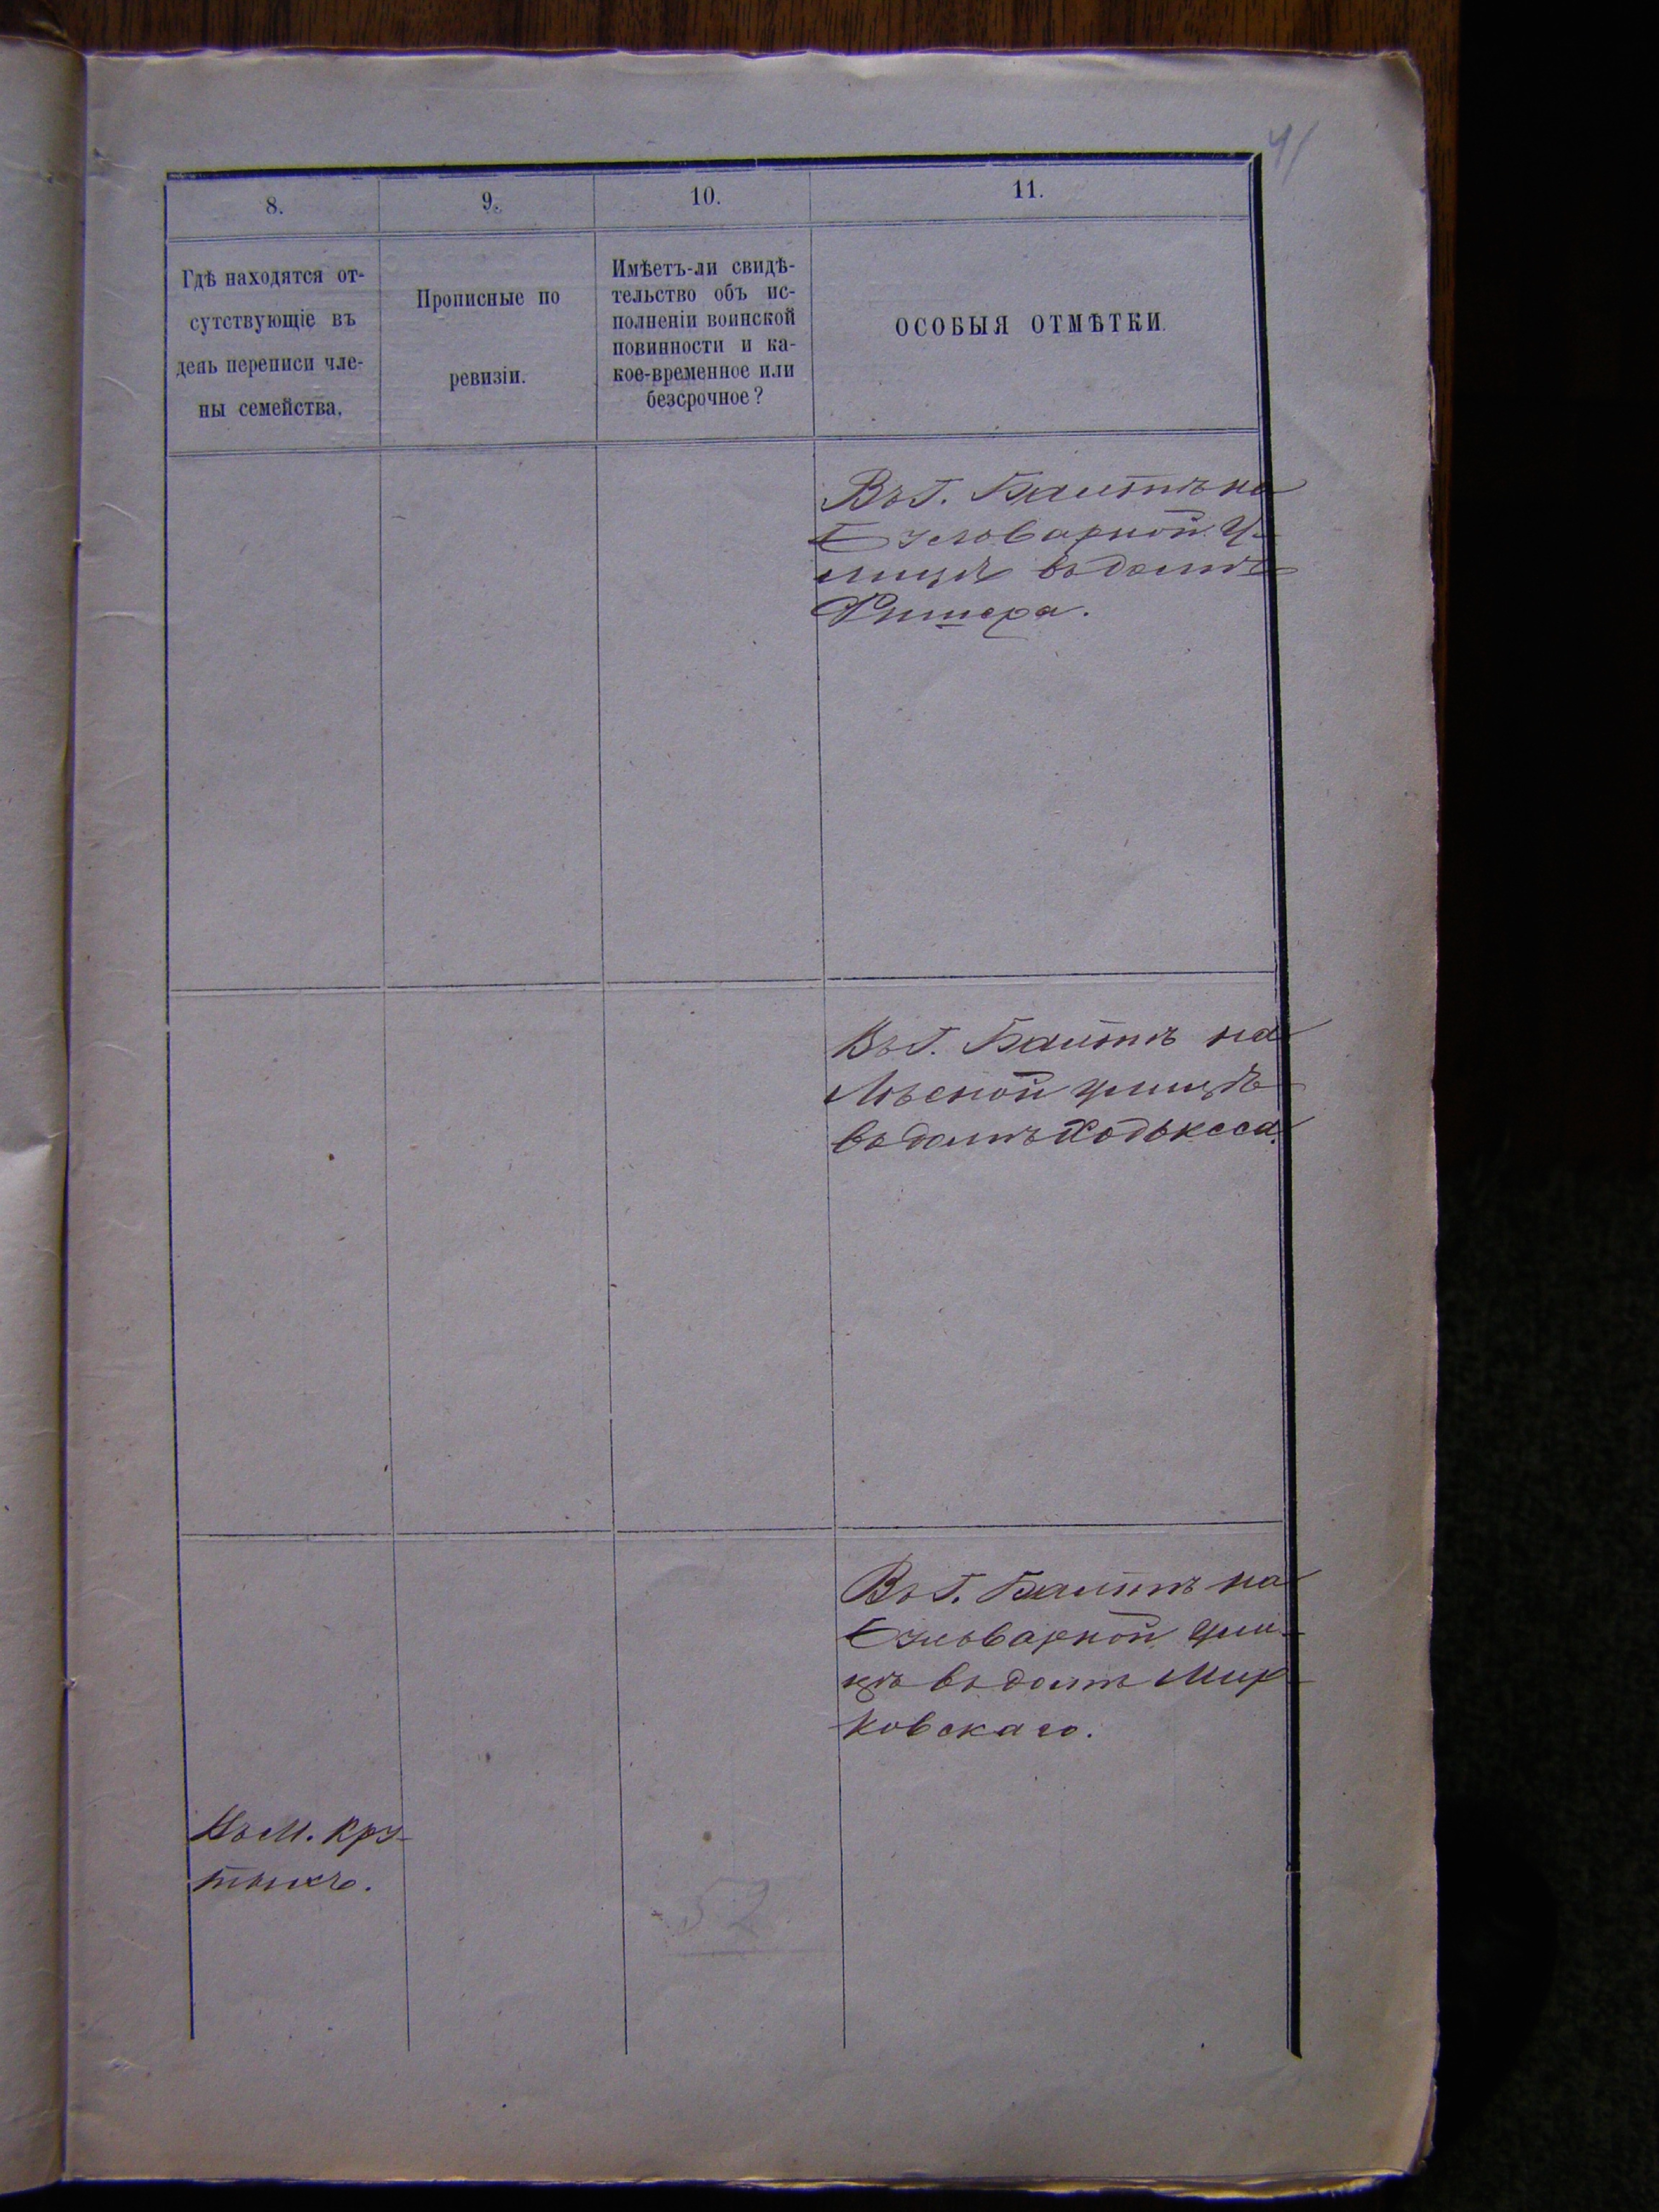 41
8.
9.
10.
11.
Гдѣ находятся от-
сутствующіе въ
день переписи чле-
ны семейства.
Прописные по
ревизіи.
Имѣетъ-ли свидѣ-
тельство объ ис-
полненіи воинской
повинности и ка-
кое-временное или
безсрочное?
ОСОБЫЯ ОТМѢТКИ.
Въ г. Балтѣ на
Узловарной у-
лицѣ въ домѣ
Фишера.
Въ г. Балтѣ на
улицѣ
въ домѣ
Въ г. Балтѣ на
ули-
цѣ въ домѣ Мир-
ковскаго.
Въ м. Кру-
тыхъ.
52